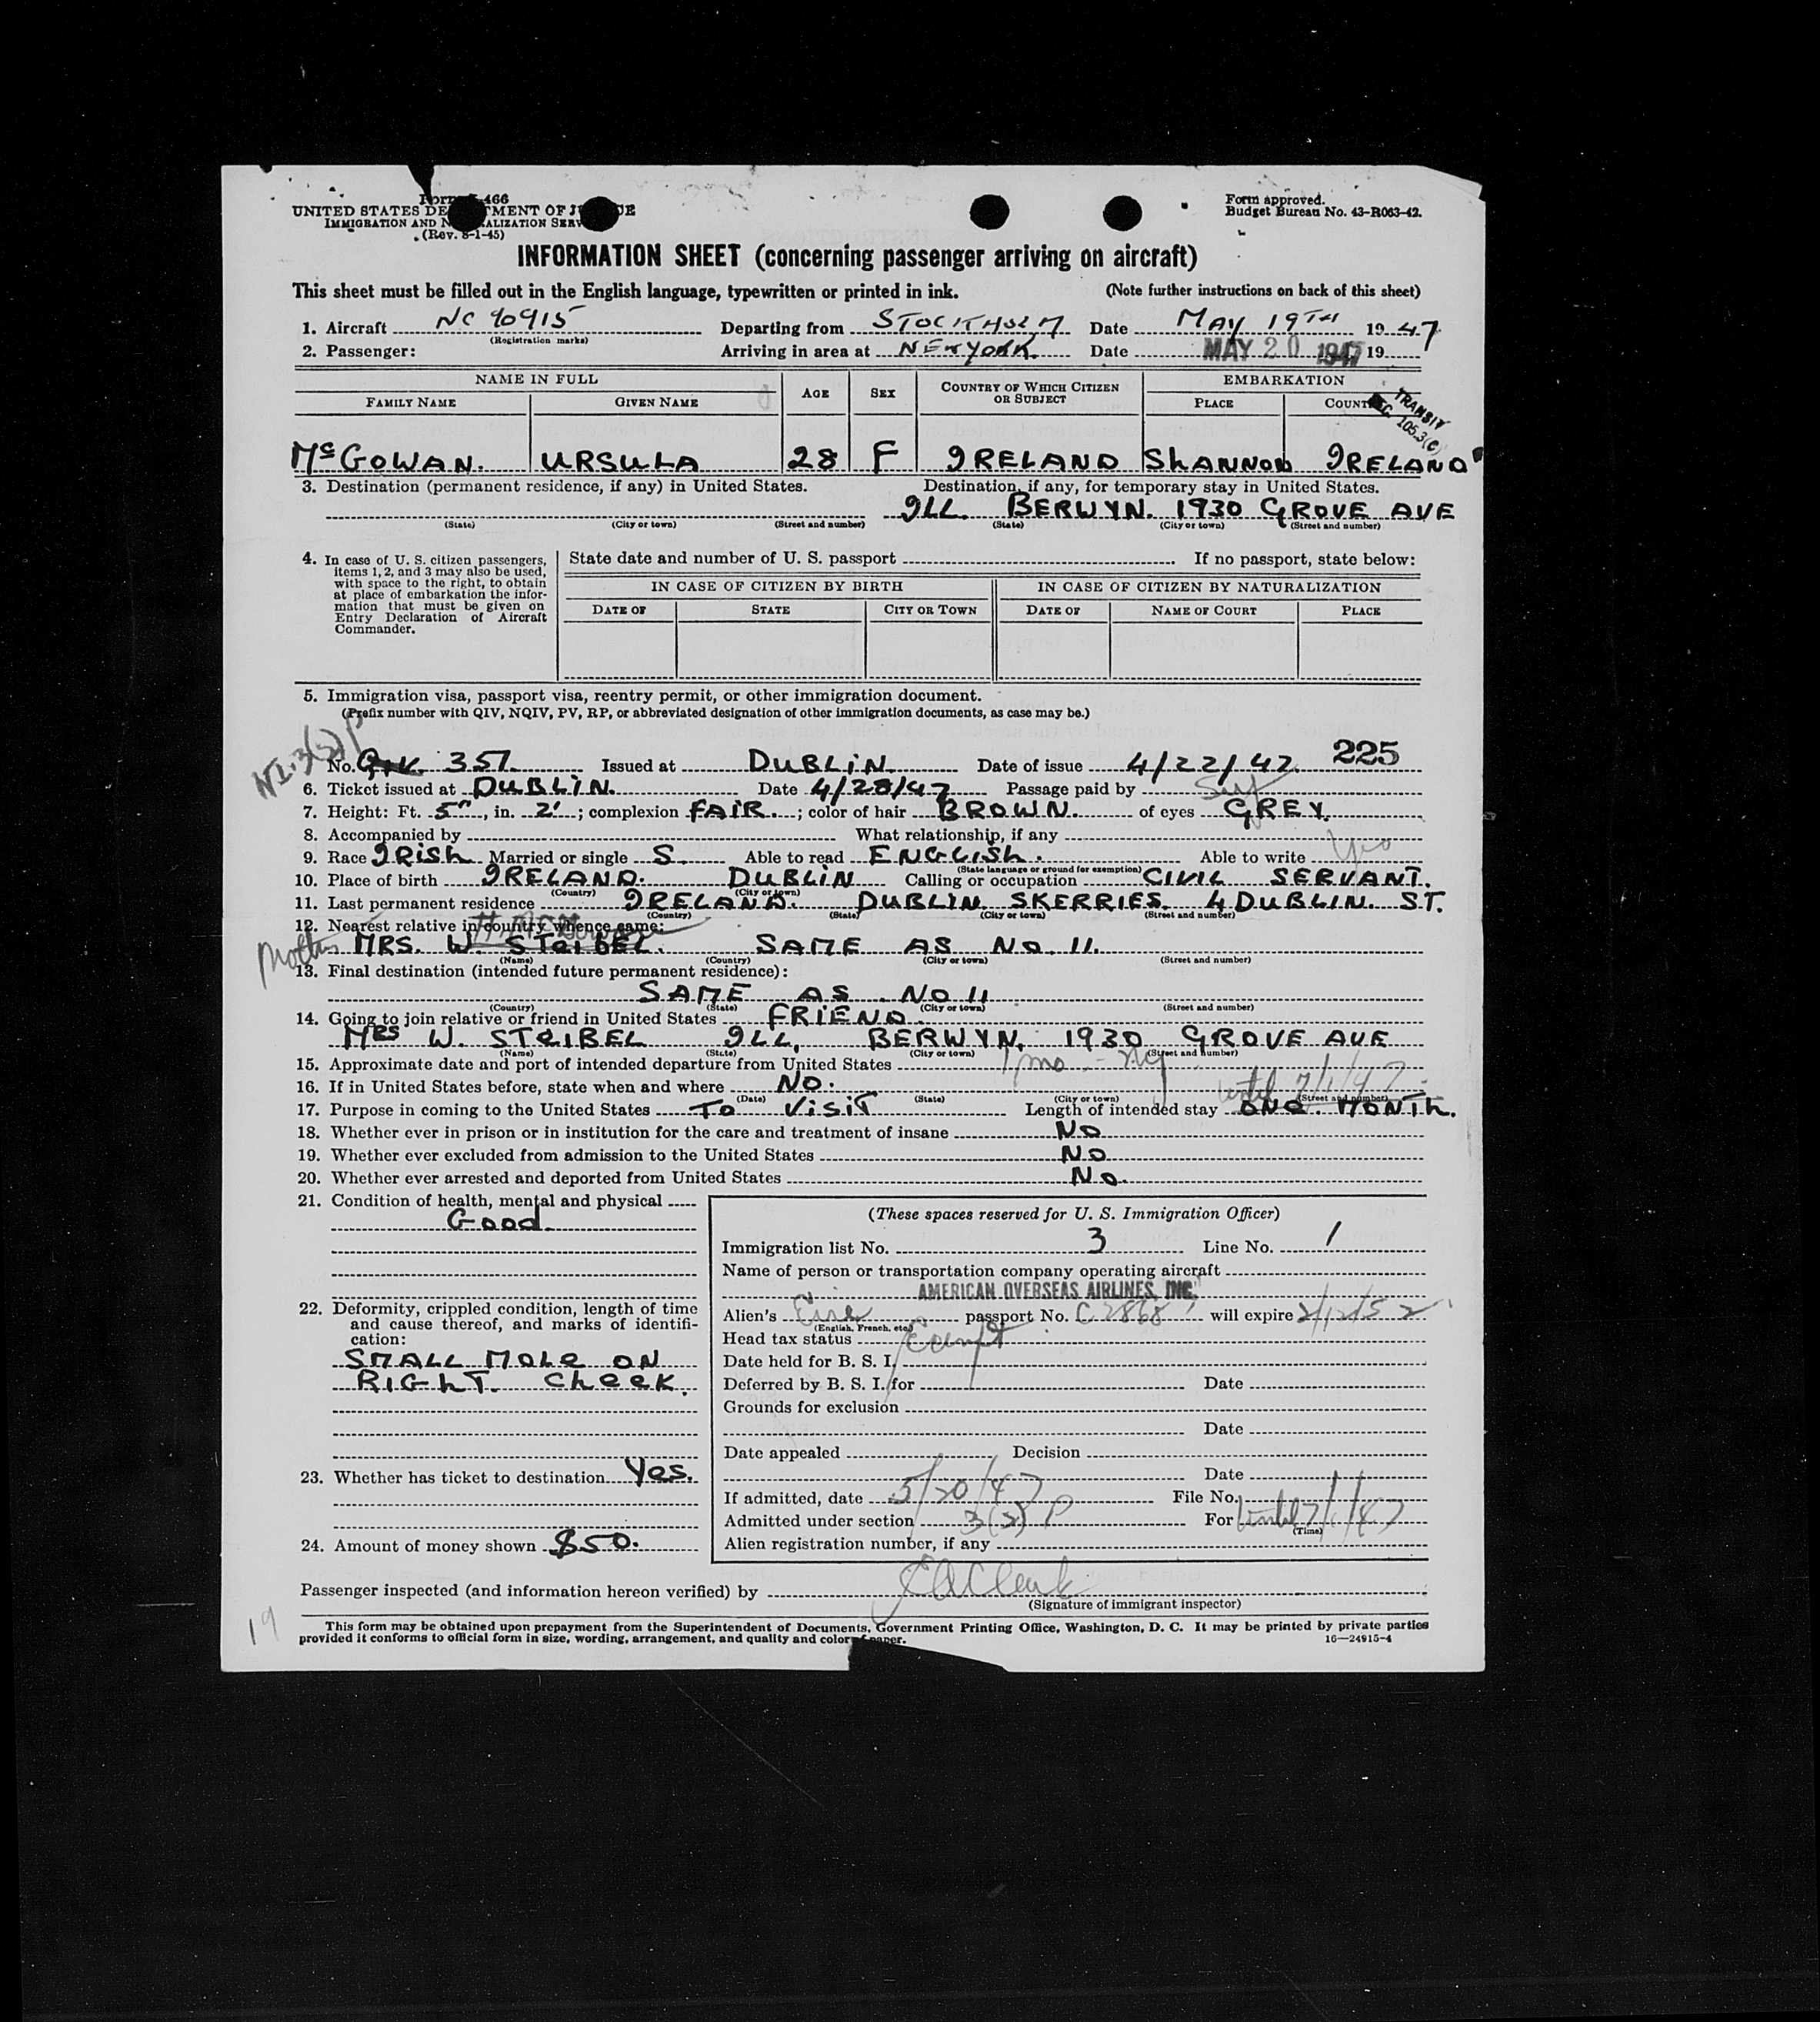 Form 466
UNITED STATES DE MENT OF J E
IMMIGRATION AND N ALIZATION SERV
(Rev. 8-1-45)
Form approved.
Budget Bureau No. 43-R063-42.
INFORMATION SHEET (concerning passenger arriving on aircraft)
This sheet must be filled out in the English language, typewritten or printed in ink. (Note further instructions on back of this sheet)
1. Aircraft NC 90915 Departing from STOCKHOLM Date MAY 19TH 1947
(Registration marks)
2. Passenger: Arriving in area at NEW YORK. Date MAY 20 1947 19
NAME IN FULL AGE SEX COUNTRY OF WHICH CITIZEN OR SUBJECT EMBARKATION
FAMILY NAME GIVEN NAME PLACE COUNT
TRANSIT
105.3(c)
McGOWAN. URSULA 28 F IRELAND SHANNON IRELAND
3. Destination (permanent residence, if any) in United States. Destination, if any, for temporary stay in United States.
ILL. BERWYN. 1930 GROVE AVE
(State) (City or town) (Street and number) (State) (City or town) (Street and number)
4. In case of U. S. citizen passengers, items 1, 2, and 3 may also be used, with space to the right, to obtain at place of embarkation the information that must be given on Entry Declaration of Aircraft Commander.
State date and number of U. S. passport If no passport, state below:
IN CASE OF CITIZEN BY BIRTH IN CASE OF CITIZEN BY NATURALIZATION
DATE OF STATE CITY OR TOWN DATE OF NAME OF COURT PLACE
5. Immigration visa, passport visa, reentry permit, or other immigration document.
(Prefix number with QIV, NQIV, PV, RP, or abbreviated designation of other immigration documents, as case may be.)
225
No. 351. Issued at DUBLIN. Date of issue 4/22/47
6. Ticket issued at DUBLIN. Date 4/28/47 Passage paid by Self
7. Height: Ft. 5", in. 2'; complexion FAIR.; color of hair BROWN. of eyes GREY.
8. Accompanied by What relationship, if any
9. Race IRISH Married or single S. Able to read ENGLISH. Able to write Yes
(State language or ground for exemption)
10. Place of birth IRELAND. DUBLIN Calling or occupation CIVIL SERVANT.
(Country) (City or town)
11. Last permanent residence IRELAND. DUBLIN SKERRIES. 4 DUBLIN. ST.
(Country) (State) (City or town) (Street and number)
12. Nearest relative in country whence came:
Mother MRS. W. STEIBEL. SAME AS NO. 11.
(Name) (Country) (City or town) (Street and number)
13. Final destination (intended future permanent residence):
SAME AS NO 11
(Country) (State) (City or town) (Street and number)
14. Going to join relative or friend in United States FRIEND.
MRS W. STEIBEL ILL. BERWYN. 1930 GROVE AVE
(Name) (State) (City or town) (Street and number)
15. Approximate date and port of intended departure from United States 1 mo - NY
16. If in United States before, state when and where NO. until 7/1/47
(Date) (State) (City or town) (Street and number)
17. Purpose in coming to the United States TO VISIT Length of intended stay ONE. MONTH.
18. Whether ever in prison or in institution for the care and treatment of insane NO
19. Whether ever excluded from admission to the United States NO
20. Whether ever arrested and deported from United States NO.
21. Condition of health, mental and physical
Good.
22. Deformity, crippled condition, length of time and cause thereof, and marks of identification:
SMALL MOLE ON
RIGHT. CHEEK.
23. Whether has ticket to destination Yes.
24. Amount of money shown $50.
(These spaces reserved for U. S. Immigration Officer)
Immigration list No. 3 Line No. 1
Name of person or transportation company operating aircraft
AMERICAN OVERSEAS AIRLINES, INC.
Alien's Eire passport No. C 2868 will expire 2/12/52
(English, French, etc.)
Head tax status Exempt
Date held for B. S. I.
Deferred by B. S. I. for Date
Grounds for exclusion
Date
Date appealed Decision
Date
If admitted, date 5/20/47 File No.
Admitted under section 3(2) P For Until 7/1/47
(Time)
Alien registration number, if any
Passenger inspected (and information hereon verified) by
(Signature of immigrant inspector)
19
This form may be obtained upon prepayment from the Superintendent of Documents, Government Printing Office, Washington, D. C. It may be printed by private parties
provided it conforms to official form in size, wording, arrangement, and quality and color of paper. 16—24915-4